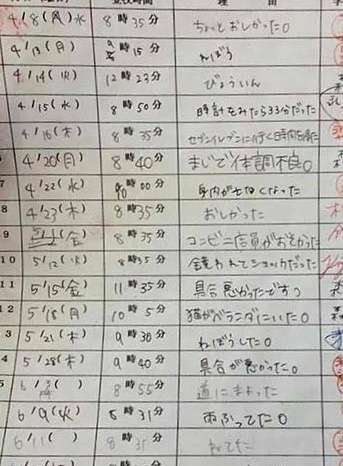 理由
4/8(月)水 8時35分 ちょっとおしかった。
4/13(月) 9時15分 ねぼう
4/14(火) 12時23分 びょういん
4/15(水) 8時50分 時計をみたら33分だった
4/16(木) 8時35分 セブンイレブンに行く時間を
6 4/20(月) 8時40分 まじで体調不良。
7 4/22(水) 時00分 身内が なくなった
8 4/23(木) 8時35分 おしかった
9 (金) 8時35分 コンビニ店員がおそかった
10 5/12(火) 8時35分 鏡われてショックだった
11 5/15(金) 11時35分 具合悪かったですっ
12 5/18(月) 10時5分 猫がベランダにいた。
3 5/21(木) 9時30分 ねぼうした。
4 5/28(木) 9時40分 具合が悪かった。
5 6/3( ) 8時55分 道にまよった
6/9(火) 8時31分 雨ふってた。
6/11( ) 8時35分 ねてた